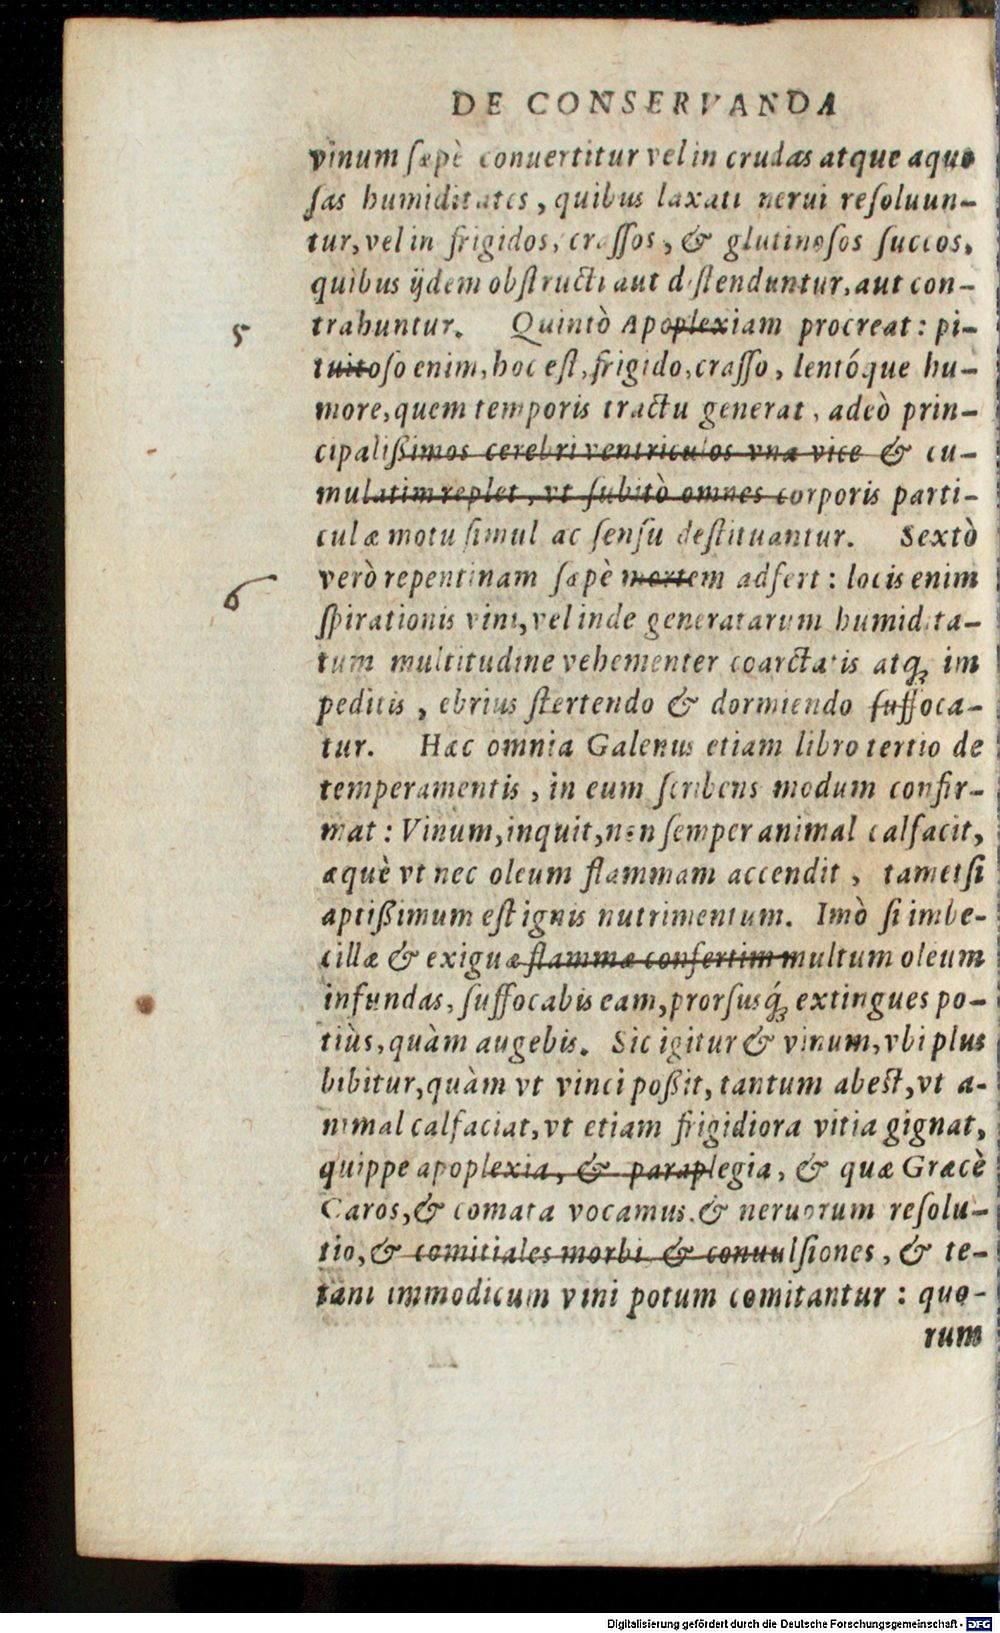 DE CONSERVANDA
vinum sæpè conuertitur vel in crudas atque aquo
sas humiditates, quibus laxati nerui resoluun-
tur, vel in frigidos, crassos, & glutinosos succos,
quibus ijdem obstructi aut distenduntur, aut con-
5 trahuntur. Quintò Apoplexiam procreat: pi-
tuitoso enim, hoc est, frigido, crasso, lentóque hu-
more, quem temporis tractu generat, adeò prin-
cipalißimos cerebri ventriculos vna vice & cu-
mulatim replet, vt subitò omnes corporis parti-
culæ motu simul ac sensu destituantur. Sextò
6 verò repentinam sæpè mortem adfert: locis enim
spirationis vini, vel inde generatarum humidita-
tum multitudine vehementer coarctatis atq; im
peditis, ebrius stertendo & dormiendo suffoca-
tur. Hæc omnia Galenus etiam libro tertio de
temperamentis, in eum scribens modum confir-
mat: Vinum, inquit, non semper animal calfacit,
æquè vt nec oleum flammam accendit, tametsi
aptißimum est ignis nutrimentum. Imò si imbe-
cillæ & exiguæ flammæ confertim multum oleum
infundas, suffocabis eam, prorsusq́; extingues po-
tiùs, quàm augebis. Sic igitur & vinum, vbi plus
bibitur, quàm vt vinci poßit, tantum abest, vt a-
nimal calfaciat, vt etiam frigidiora vitia gignat,
quippe apoplexia, & paraplegia, & quæ Græcè
Caros, & comata vocamus, & neruorum resolu-
tio, & comitiales morbi & conuulsiones, & te-
tani immodicum vini potum comitantur: quo-
rum
Digitalisierung gefördert durch die Deutsche Forschungsgemeinschaft - DFG